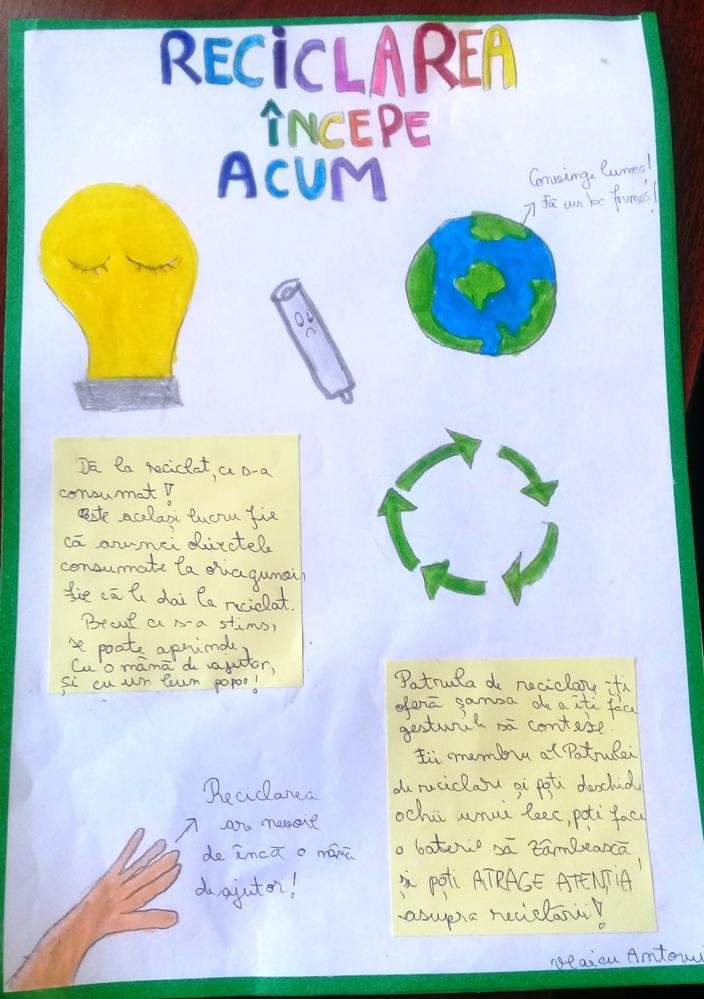 RECICLAREA
ÎNCEPE
ACUM
Convinge lumea!
Fă un loc frumos!
Dă la reciclat, ce s-a
consumat!
Este același lucru fie
că arunci obiectele
consumate la orice gunoi,
fie că le dai la reciclat.
Becul ce s-a stins,
se poate aprinde,
Cu o mână de ajutor,
Și cu un bun popor!
Patrula de reciclare îți
oferă șansa de a îți face
gesturile să conteze.
Fii membru al Patrulei
de reciclare și poți deschide
ochii unui bec, poți face
o baterie să zâmbească,
și poți ATRAGE ATENȚIA
asupra reciclării!
Reciclarea
are nevoie
de încă o mână
de ajutor!
Vlaicu